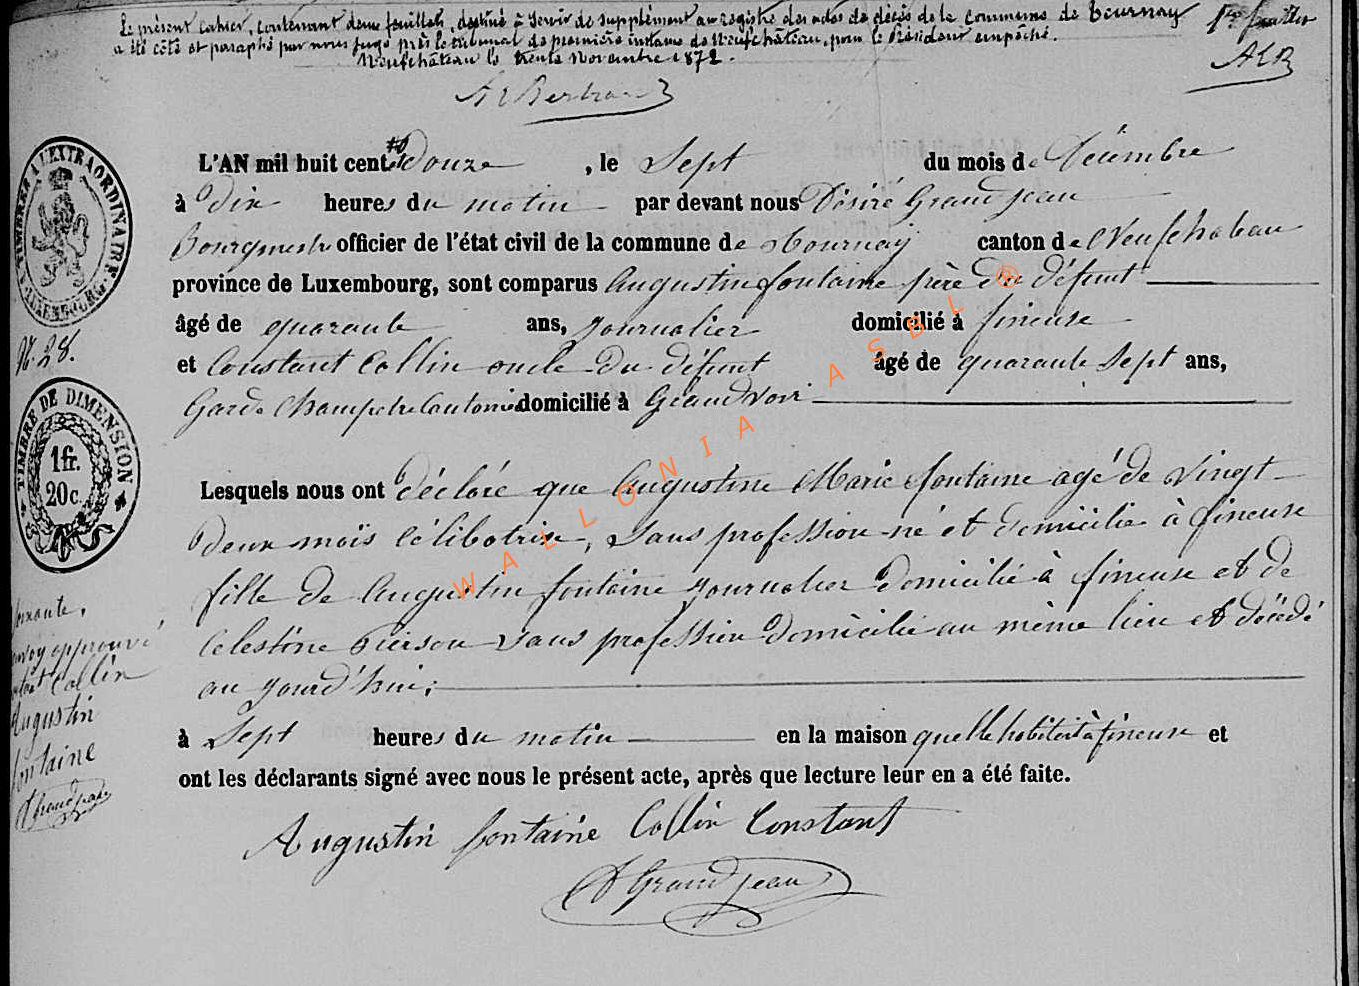 Le présent cahier, contenant deux feuillets, destiné à servir de supplément au registre des actes de décès de la commune de Tournay
a été coté et paraphé par nous juge près le tribunal de première instance de Neufchâteau, pour le Président empêché.
Neufchâteau le trente Novembre 1872.
1er feuillet
AEB
A E Bertrand
TIMBRE A L'EXTRAORDINAIRE
LUXEMBOURG
L'AN mil huit cent Douze , le Sept du mois de Décembre
à Dix heures du matin par devant nous Désiré Grandjean
Bourgmestre officier de l'état civil de la commune de Tournay canton de Neufchateau
province de Luxembourg, sont comparus Augustin fontaine père du défunt
âgé de quarante ans, journalier domicilié à fineuse
N. 28.
et Constant Collin oncle du défunt âgé de quarante Sept ans,
Garde Champetre domicilié à Grandvoir
TIMBRE DE DIMENSION
1 fr.
20 c.
Lesquels nous ont déclaré que Augustine Marie fontaine agé de vingt
deux mois célibatrise, sans profession né et domicilié à fineuse
fille de Augustin fontaine journalier domicilié à fineuse et de
Celestine Pierson sans profession domicilié au même lieu et décédé
au jourd'hui;
à Sept heures du matin en la maison quelle habitait à fineuse et
ont les déclarants signé avec nous le présent acte, après que lecture leur en a été faite.
soixante,
approuvé
Collin
Augustin
fontaine
D Grandjean
Augustin fontaine Collin Constant
D Grandjean
WALLONIA ASBL ®